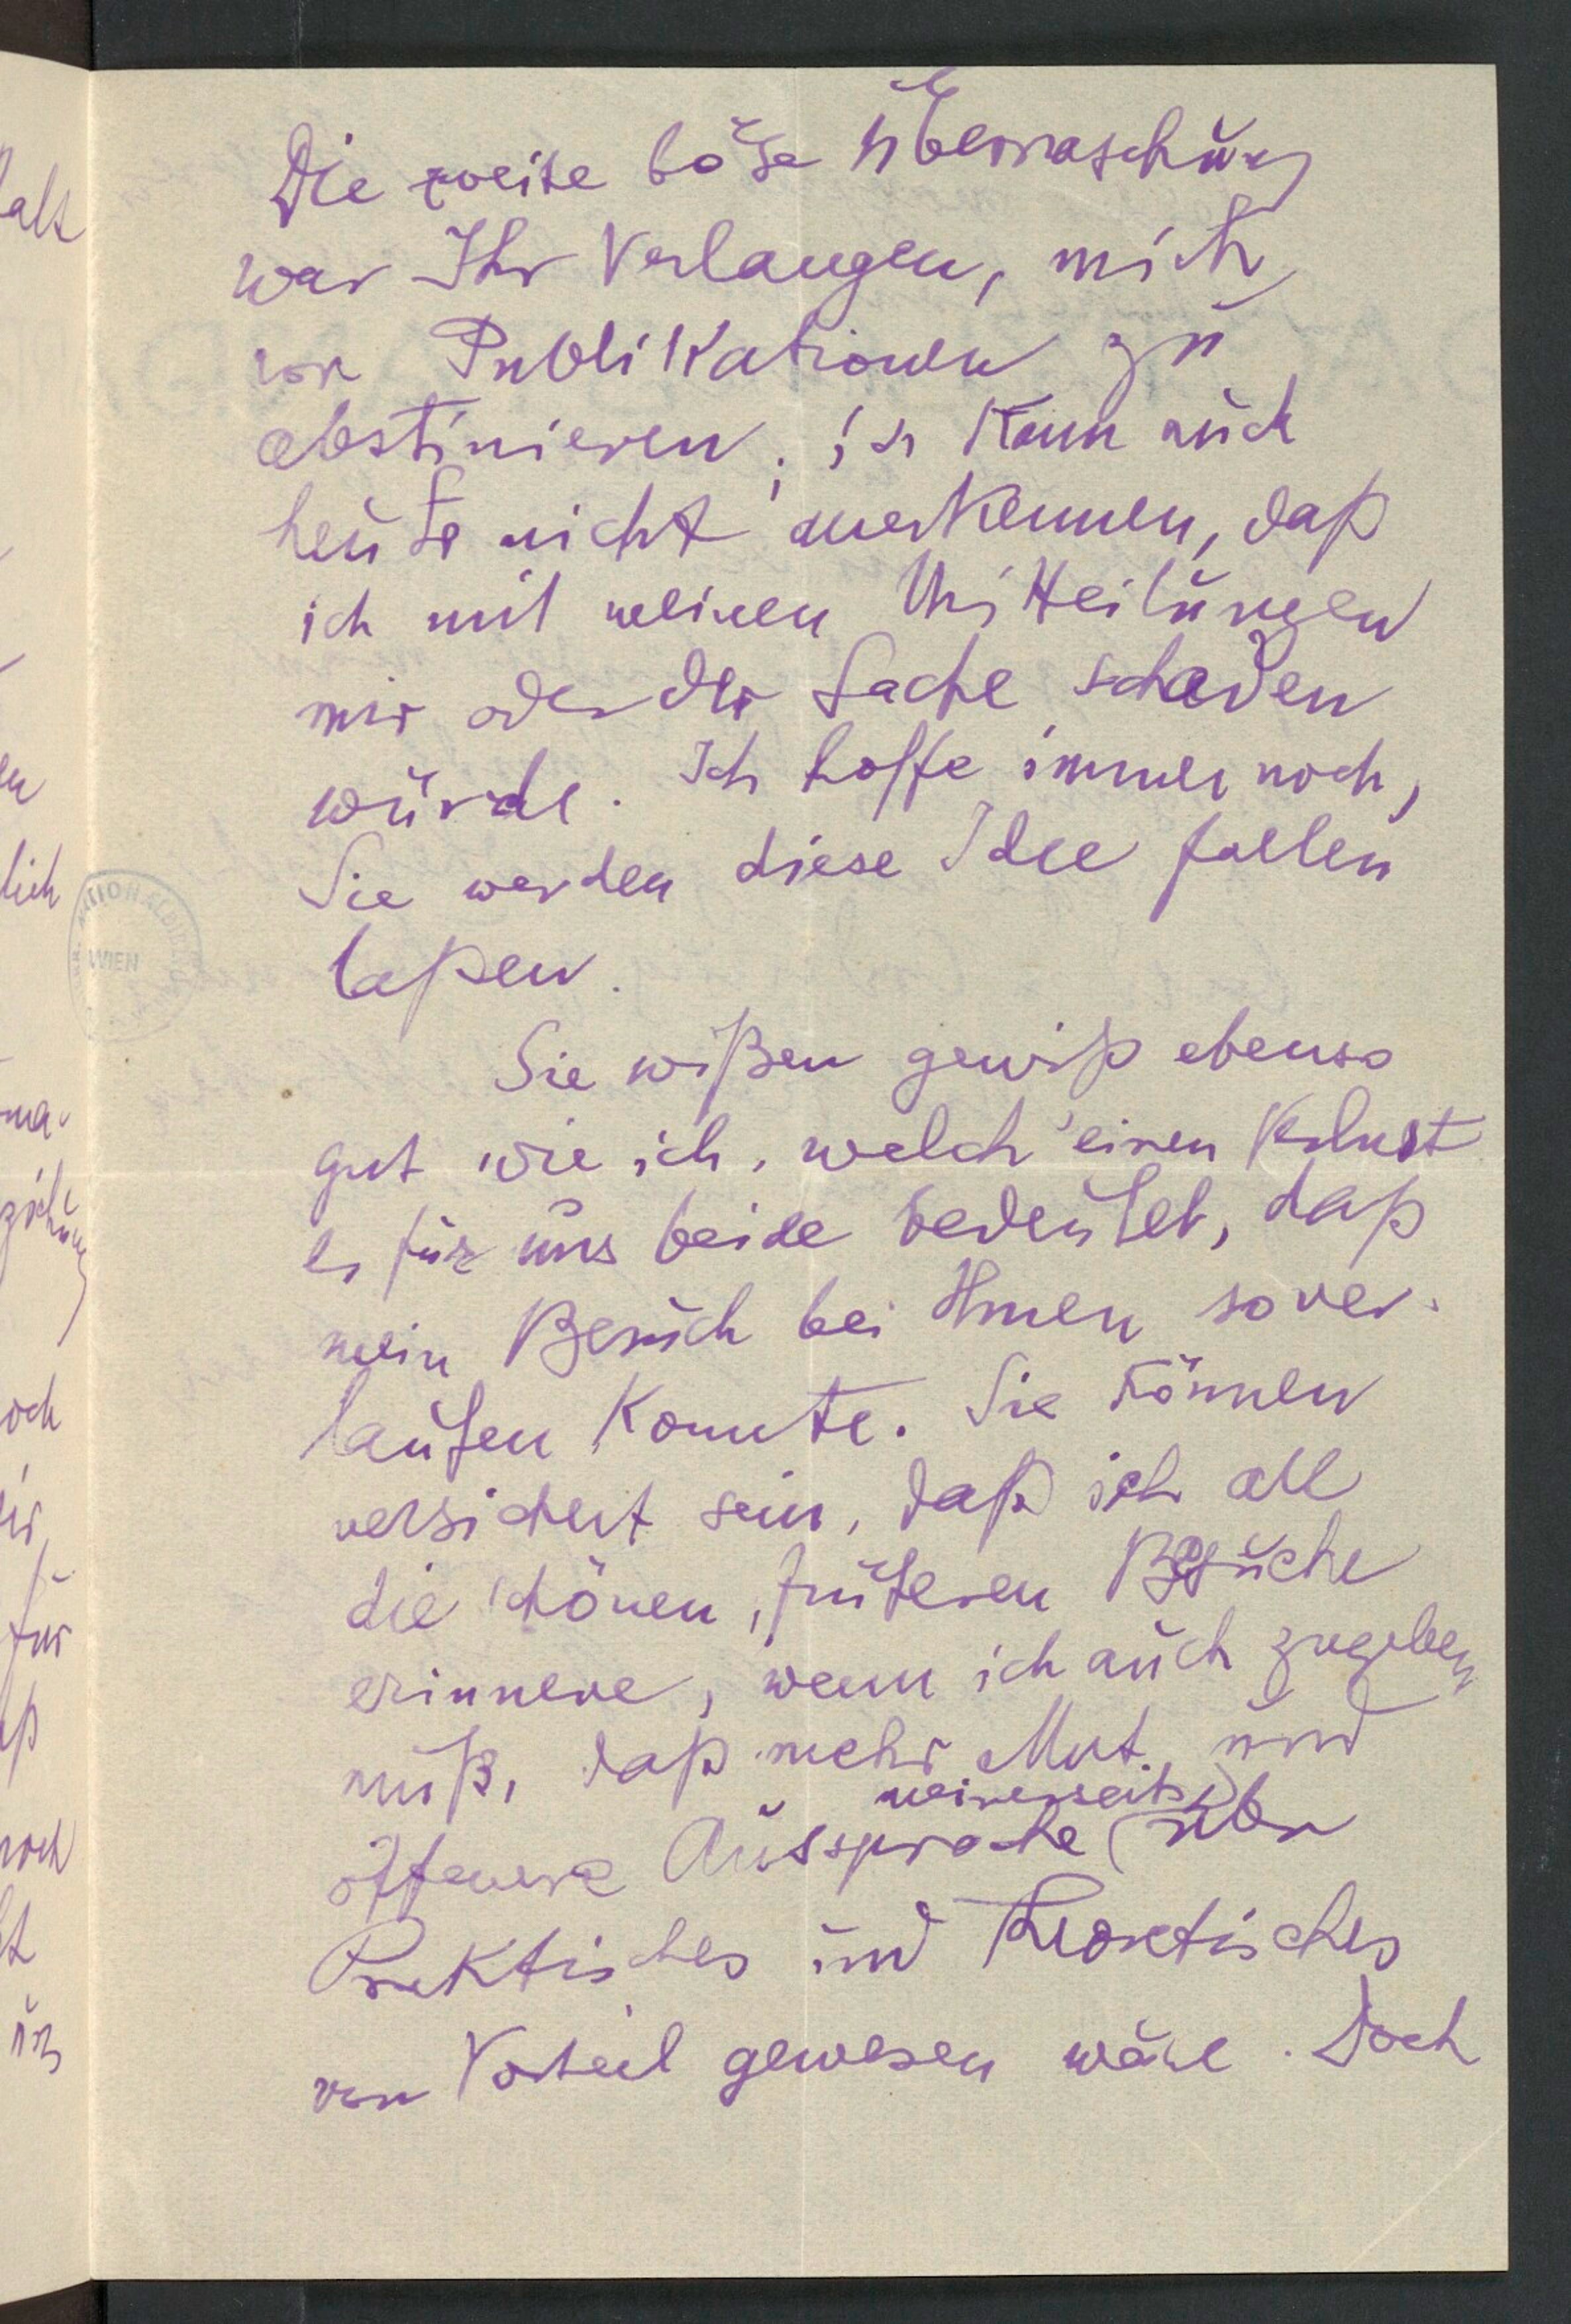 Die zweite böse Überraschung
war Ihr Verlangen, mich
von Publikationen zu
abstinieren; ich kann auch
heute nicht anerkennen, daß
ich mit meinen Mitteilungen
mir oder der Sache schaden
würde. Ich hoffe immer noch,
Sie werden diese Idee fallen
laßen.
Sie wißen gewiß ebenso
gut wie ich, welch' einen Verlust
es für uns beide bedeutet, daß
mein Besuch bei Ihnen so ver-
laufen konnte. Sie können
versichert sein, daß ich all
die schönen, früheren Besuche
erinnere, wenn ich auch zugeben
muß, daß mehr Mut und
meinerseits
offenere Aussprache über
Praktisches und Theoretisches
von Vorteil gewesen wäre. Doch
alt
en
lich
ma-
ziehung
och
für
ß
noch
WIEN